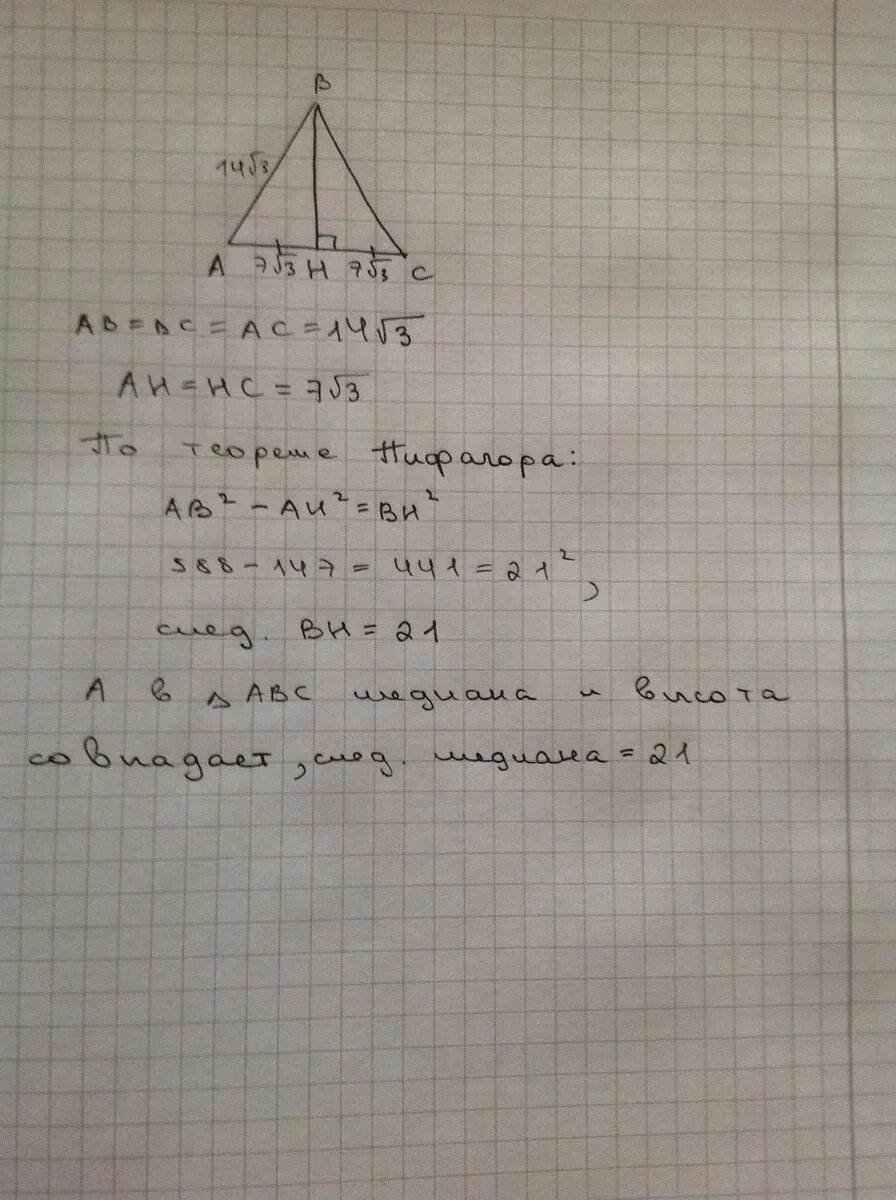 B
14√3
A 7√3 H 7√3 C
AB = BC = AC = 14√3
AH = HC = 7√3
По теореме Пифагора:
AB² - AH² = BH²
588 - 147 = 441 = 21²,
след. BH = 21
А в △ABC медиана и высота
совпадает, след. медиана = 21